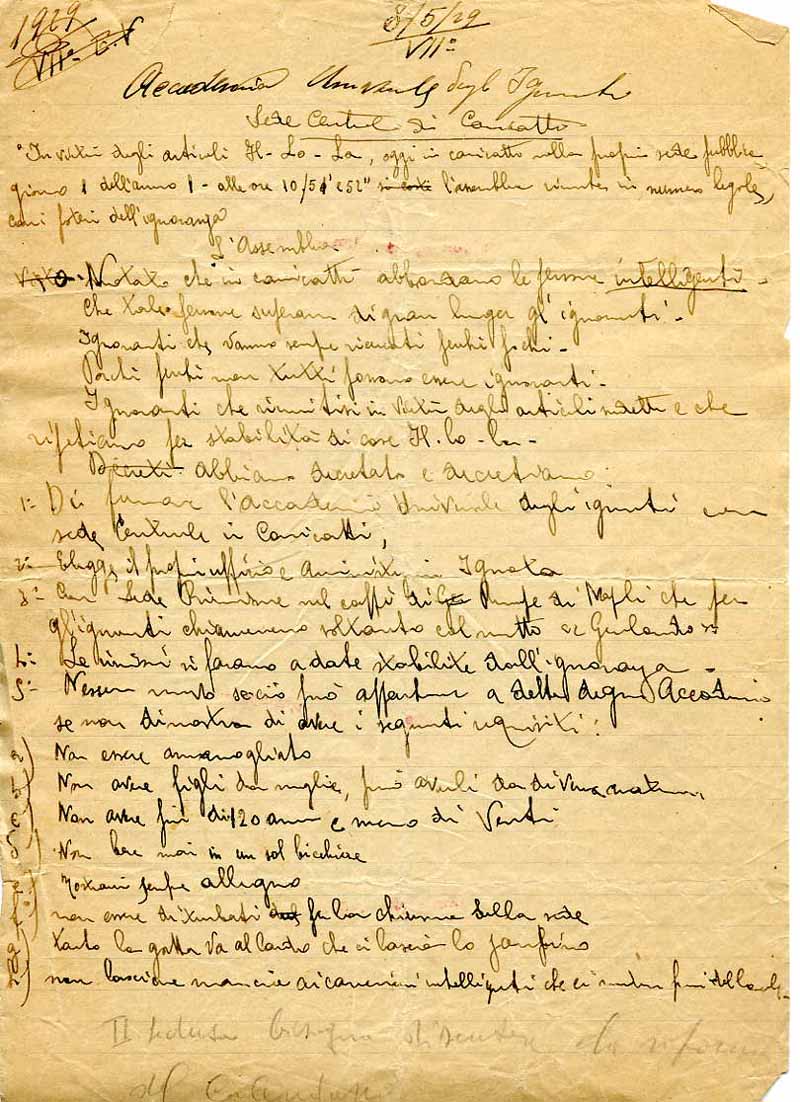 1929
VIIº E.F
8/5/29
VIIº
Accademia Universale degli Ignoranti
Sede Central di Canicattì
"In virtù degli articoli H-Lo-La, oggi in canicattì nella propria sede pubblica
giorno 1 dell'anno 1 - alle ore 10/51' e 52" l'assemblea riunitasi in numero legale,
con i poteri dell'ignoranza
L'Assemblea
Visto. Notato che in canicattì abbondano le persone intelligenti -
che tale persone superano di gran lunga gl'ignoranti -
Ignoranti che vanno sempre ricercati perchè pochi -
Pochi perchè non tutti possono essere ignoranti -
Ignoranti che riunitisi in virtù degli articoli sudetti e che
ripetiamo per stabilità di cose H. lo - la -
Decreti. abbiamo decretato e decretiamo:
1º- Di formare l'accademia Universale degli ignoranti con
sede Centrale in Canicatti,
2º- Elegge il proprio ufficio e
3º- Con Sede nel caffè di di Napoli che per
gl'ignoranti chiameremo soltanto col motto
4º- Le riunioni si farano a date stabilite dall'ignoranza -
5º- Nessun socio può appartenere a detta degna Accademia
se non dimostra di avere i seguenti requisiti:
Non essere ammogliato
Non avere figli da moglie, può averli da diversa natura,
Non avere più di 120 anni e meno di Venti
Non bere mai in un sol bicchiere
sempre allegro
non essere disturbati per la chiusura della sede
tanto la gatta va al lardo che ci lascia lo zampino
non lasciare mancie ai camerieri intelligenti che ci
II seduta bisogna discutere la riforma
del Calendario